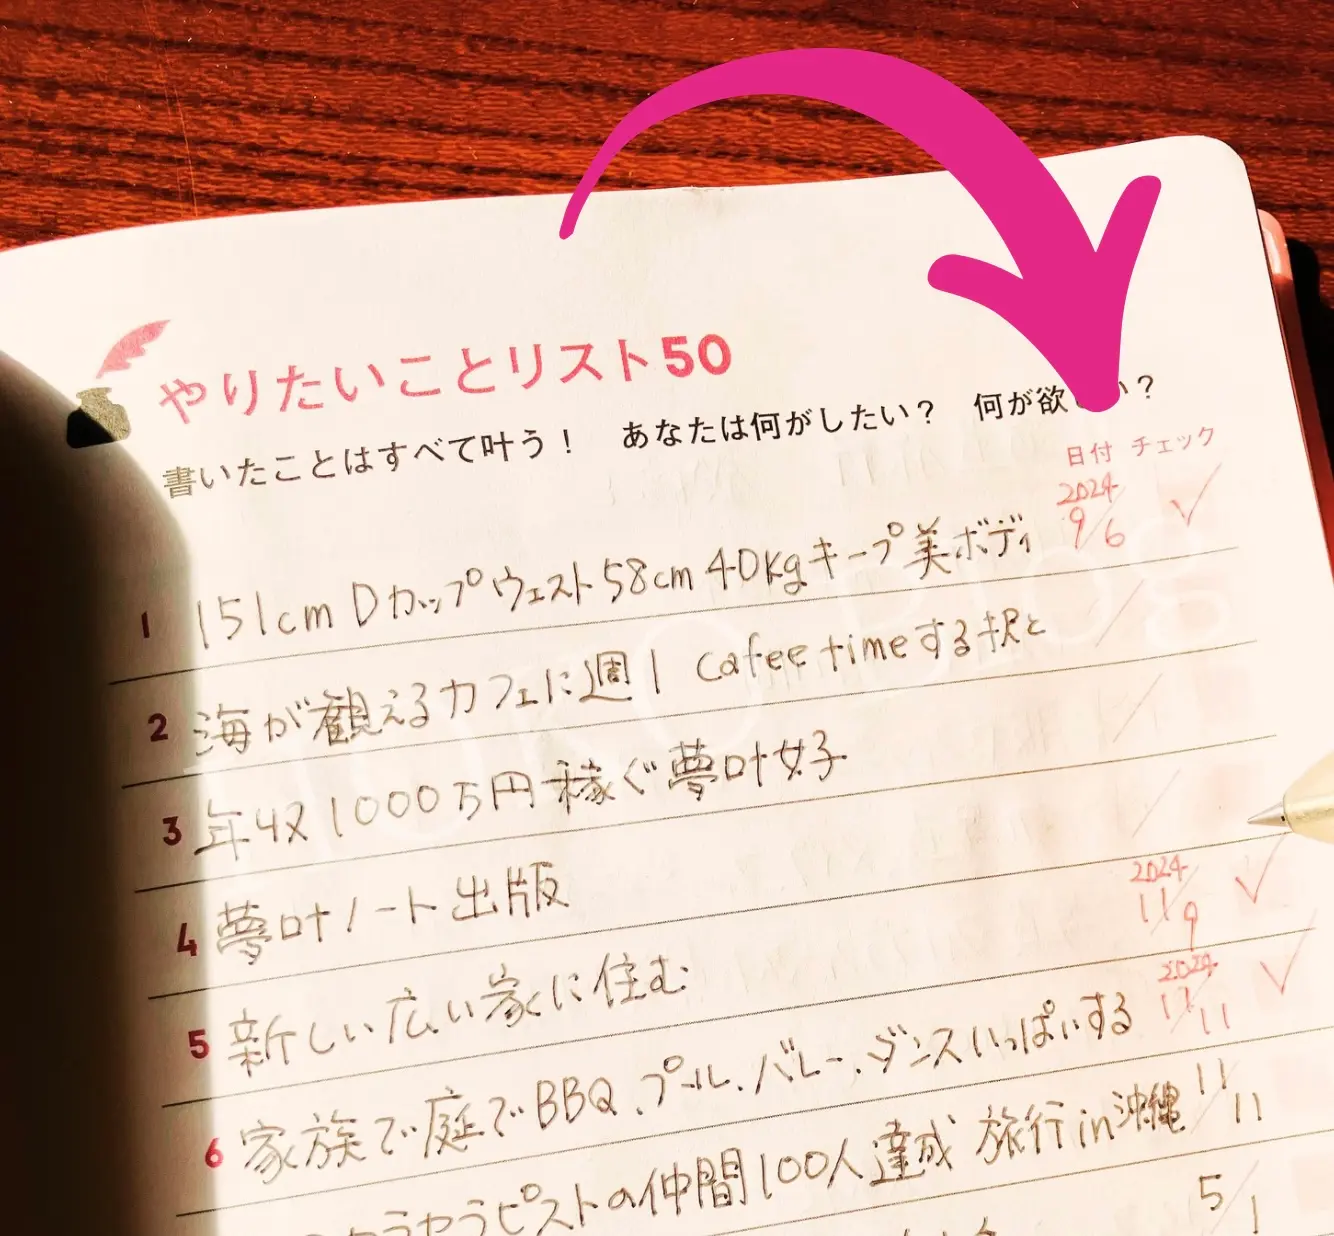 やりたいことリスト50
書いたことはすべて叶う！ あなたは何がしたい？ 何が欲 い？
日付 チェック
2024 9/6 ✓
1 151cm Dカップウェスト58cm 40kgキープ美ボディ
2 海が観えるカフェに週1 cafee timeする択と
3 年収1000万円稼ぐ夢叶女子
4 夢叶ノート出版
2024 11/9 ✓
5 新しい広い家に住む
2024 11/11 ✓
6 家族で庭でBBQ、プール、バレー、ダンスいっぱいする
11/11
ピストの仲間100人達成 旅行in沖縄
5/1